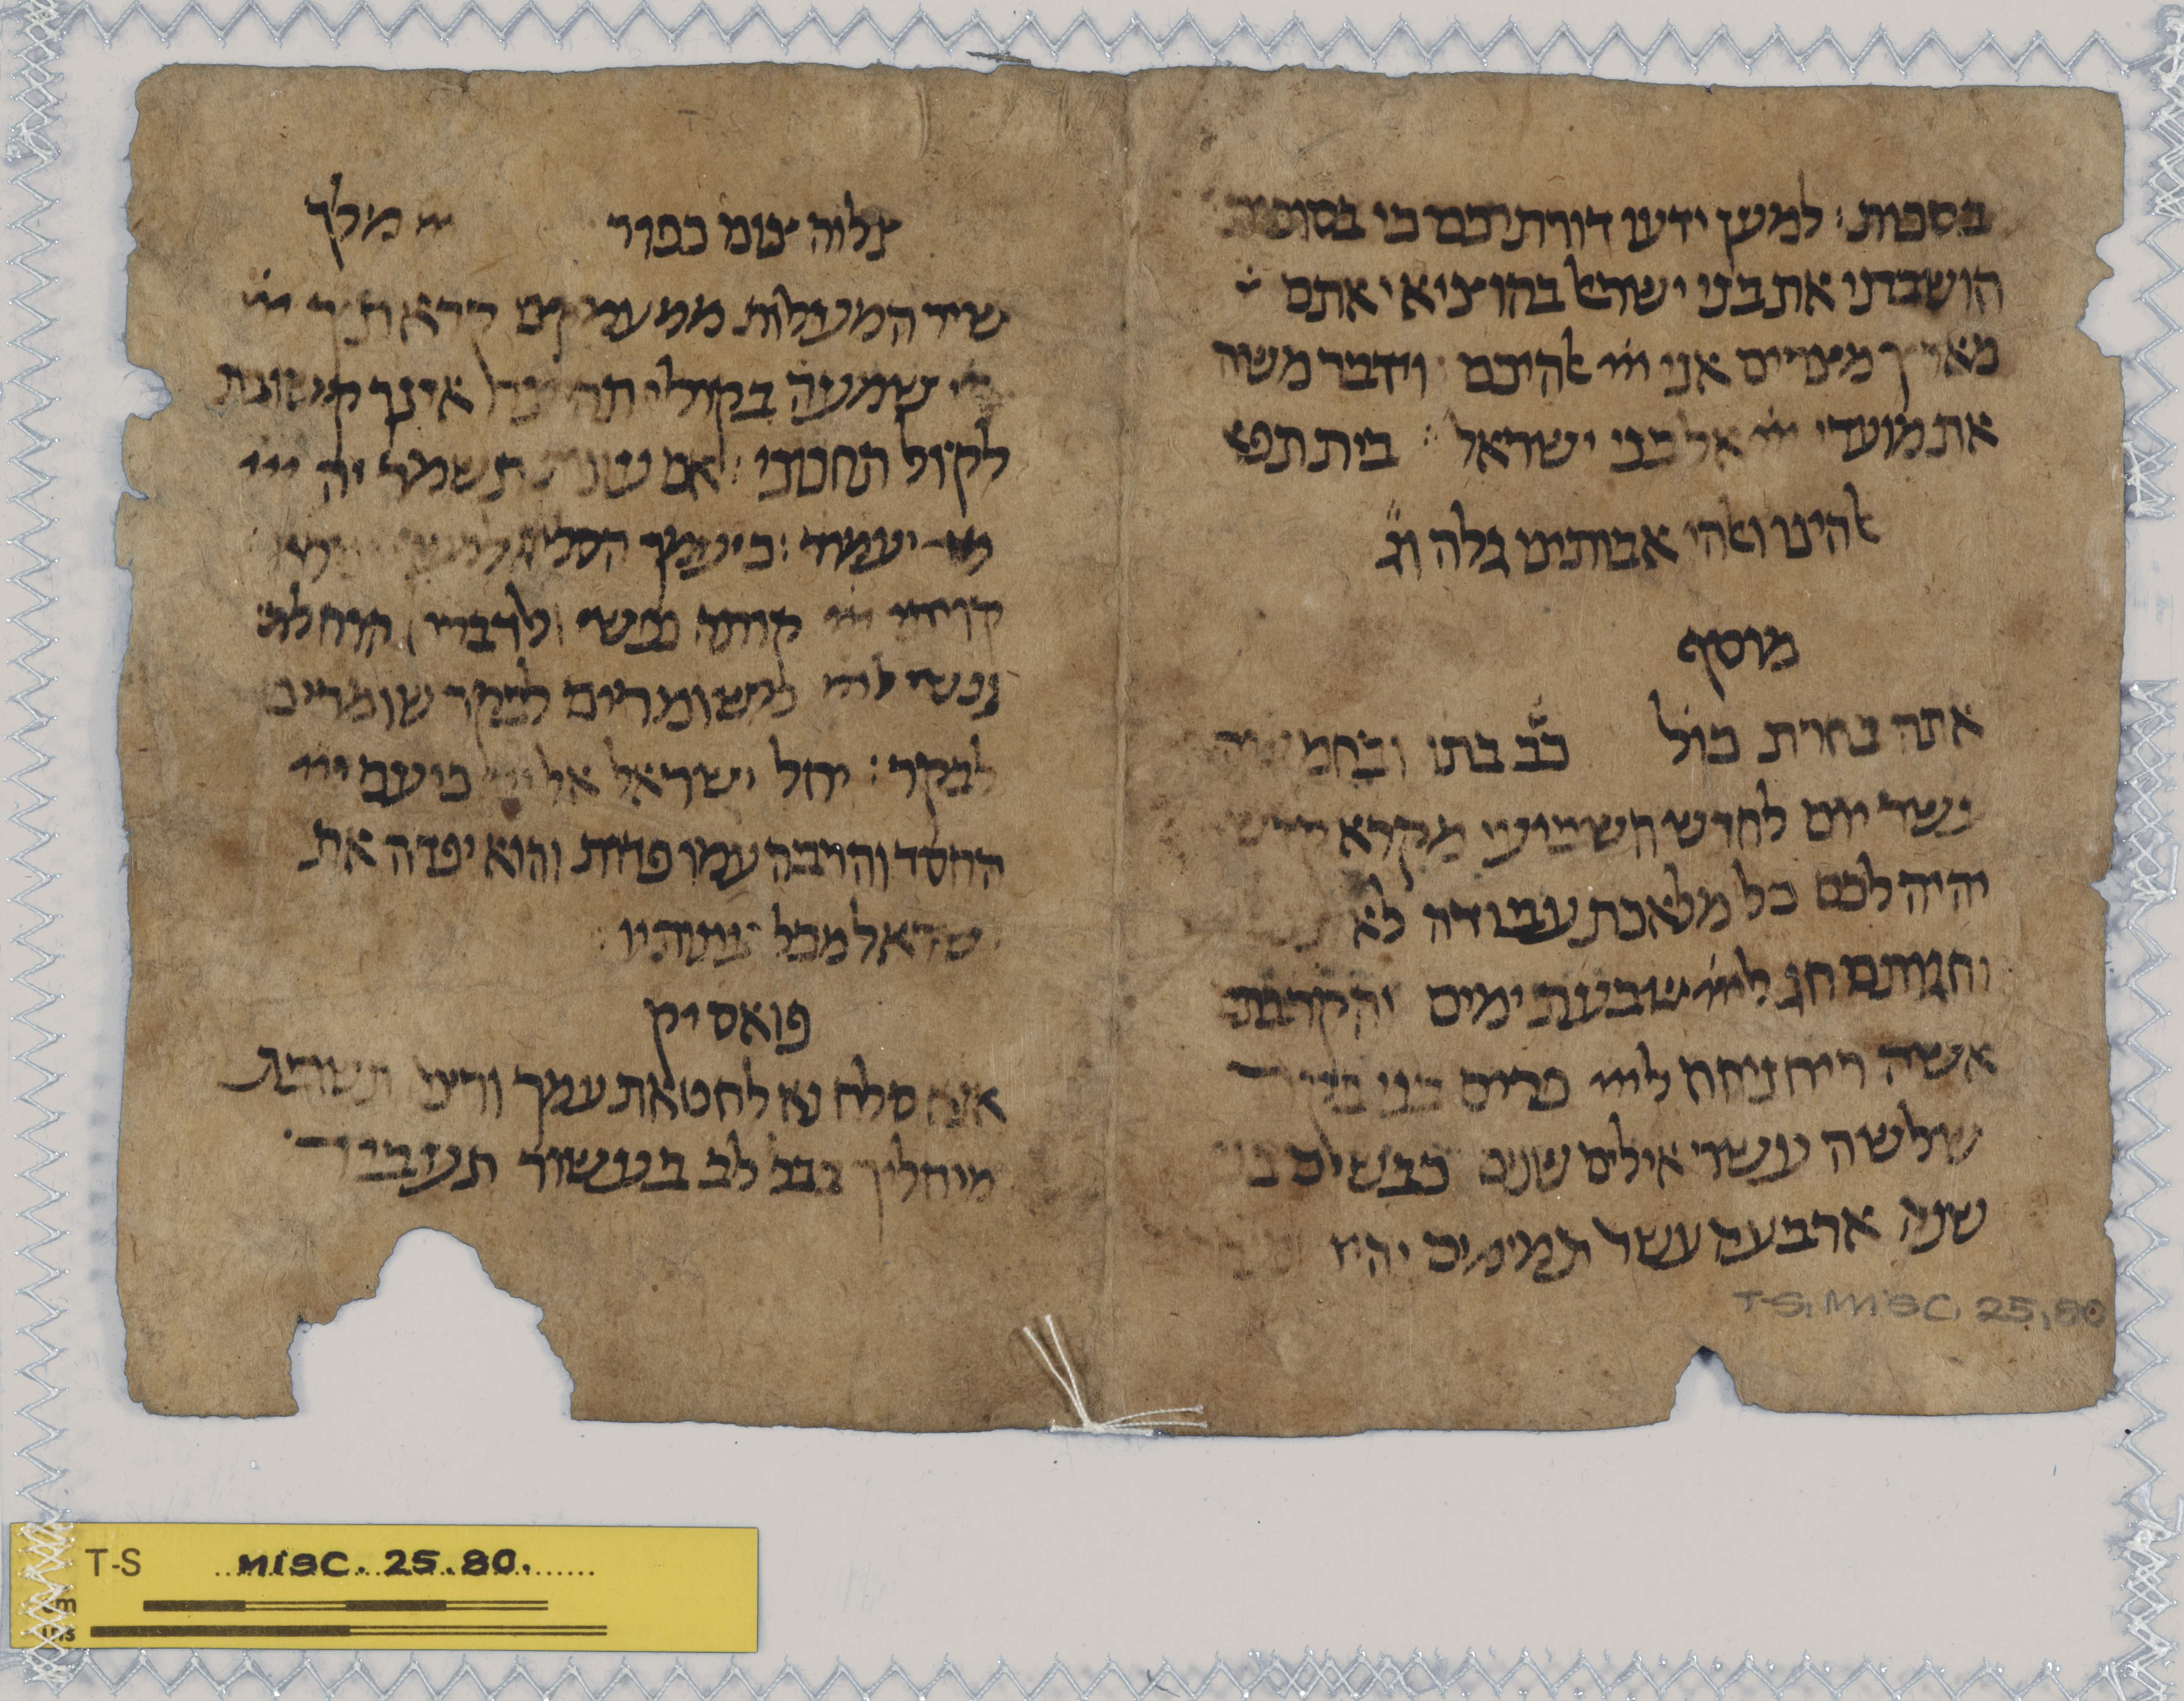 בסכות: למען ידעו דורתיכם כי בסוכות
הושבתי את בני ישראל בהוציאי אתם
מארץ מצרים אני ייי אהיכם וידבר משה
את מועדי ייי אל בני ישראל: בית תפא
אהינו ואהי אבותינו גלה וג
מוסף
אתה בחרת כול ככ בתו ובחמשה
עשר יום לחדש השביעי מקרא קדש
יהיה לכם כל מלאכת עבודה לא
וחגותם חג לייי שבעת ימים והקרבת
אשה ריח ניחח לייי פרים בני בקר
שלשה עשר אילים שנים כבשים בני
שנה ארבעה עשר תמימים יהיו
צלוה צום כפור ייי מלך
שיר המעלות ממעמקים קראתיך ייי
ייי שמעה בקולי תהיינה אזניך קשובות
לקול תחנוני: אם עונות תשמר יה ייי
מי יעמוד: כי עמך הסליחה למען
קויתי ייי קותה נפשי ולדברו הוחלתי
נפשי לייי משומרים לבקר שומרים
לבקר: יחל ישראל אל ייי כי עם ייי
החסד והרבה עמו פדות והוא יפדה את
ישראל מכל עונותיו
פואסיק
אנא סלח נא לחטאת עמך
מיחליך בכל לב בעשור תעביר
T-S. MISC. 25,80
T-S MISC. 25.80.
cm
ins